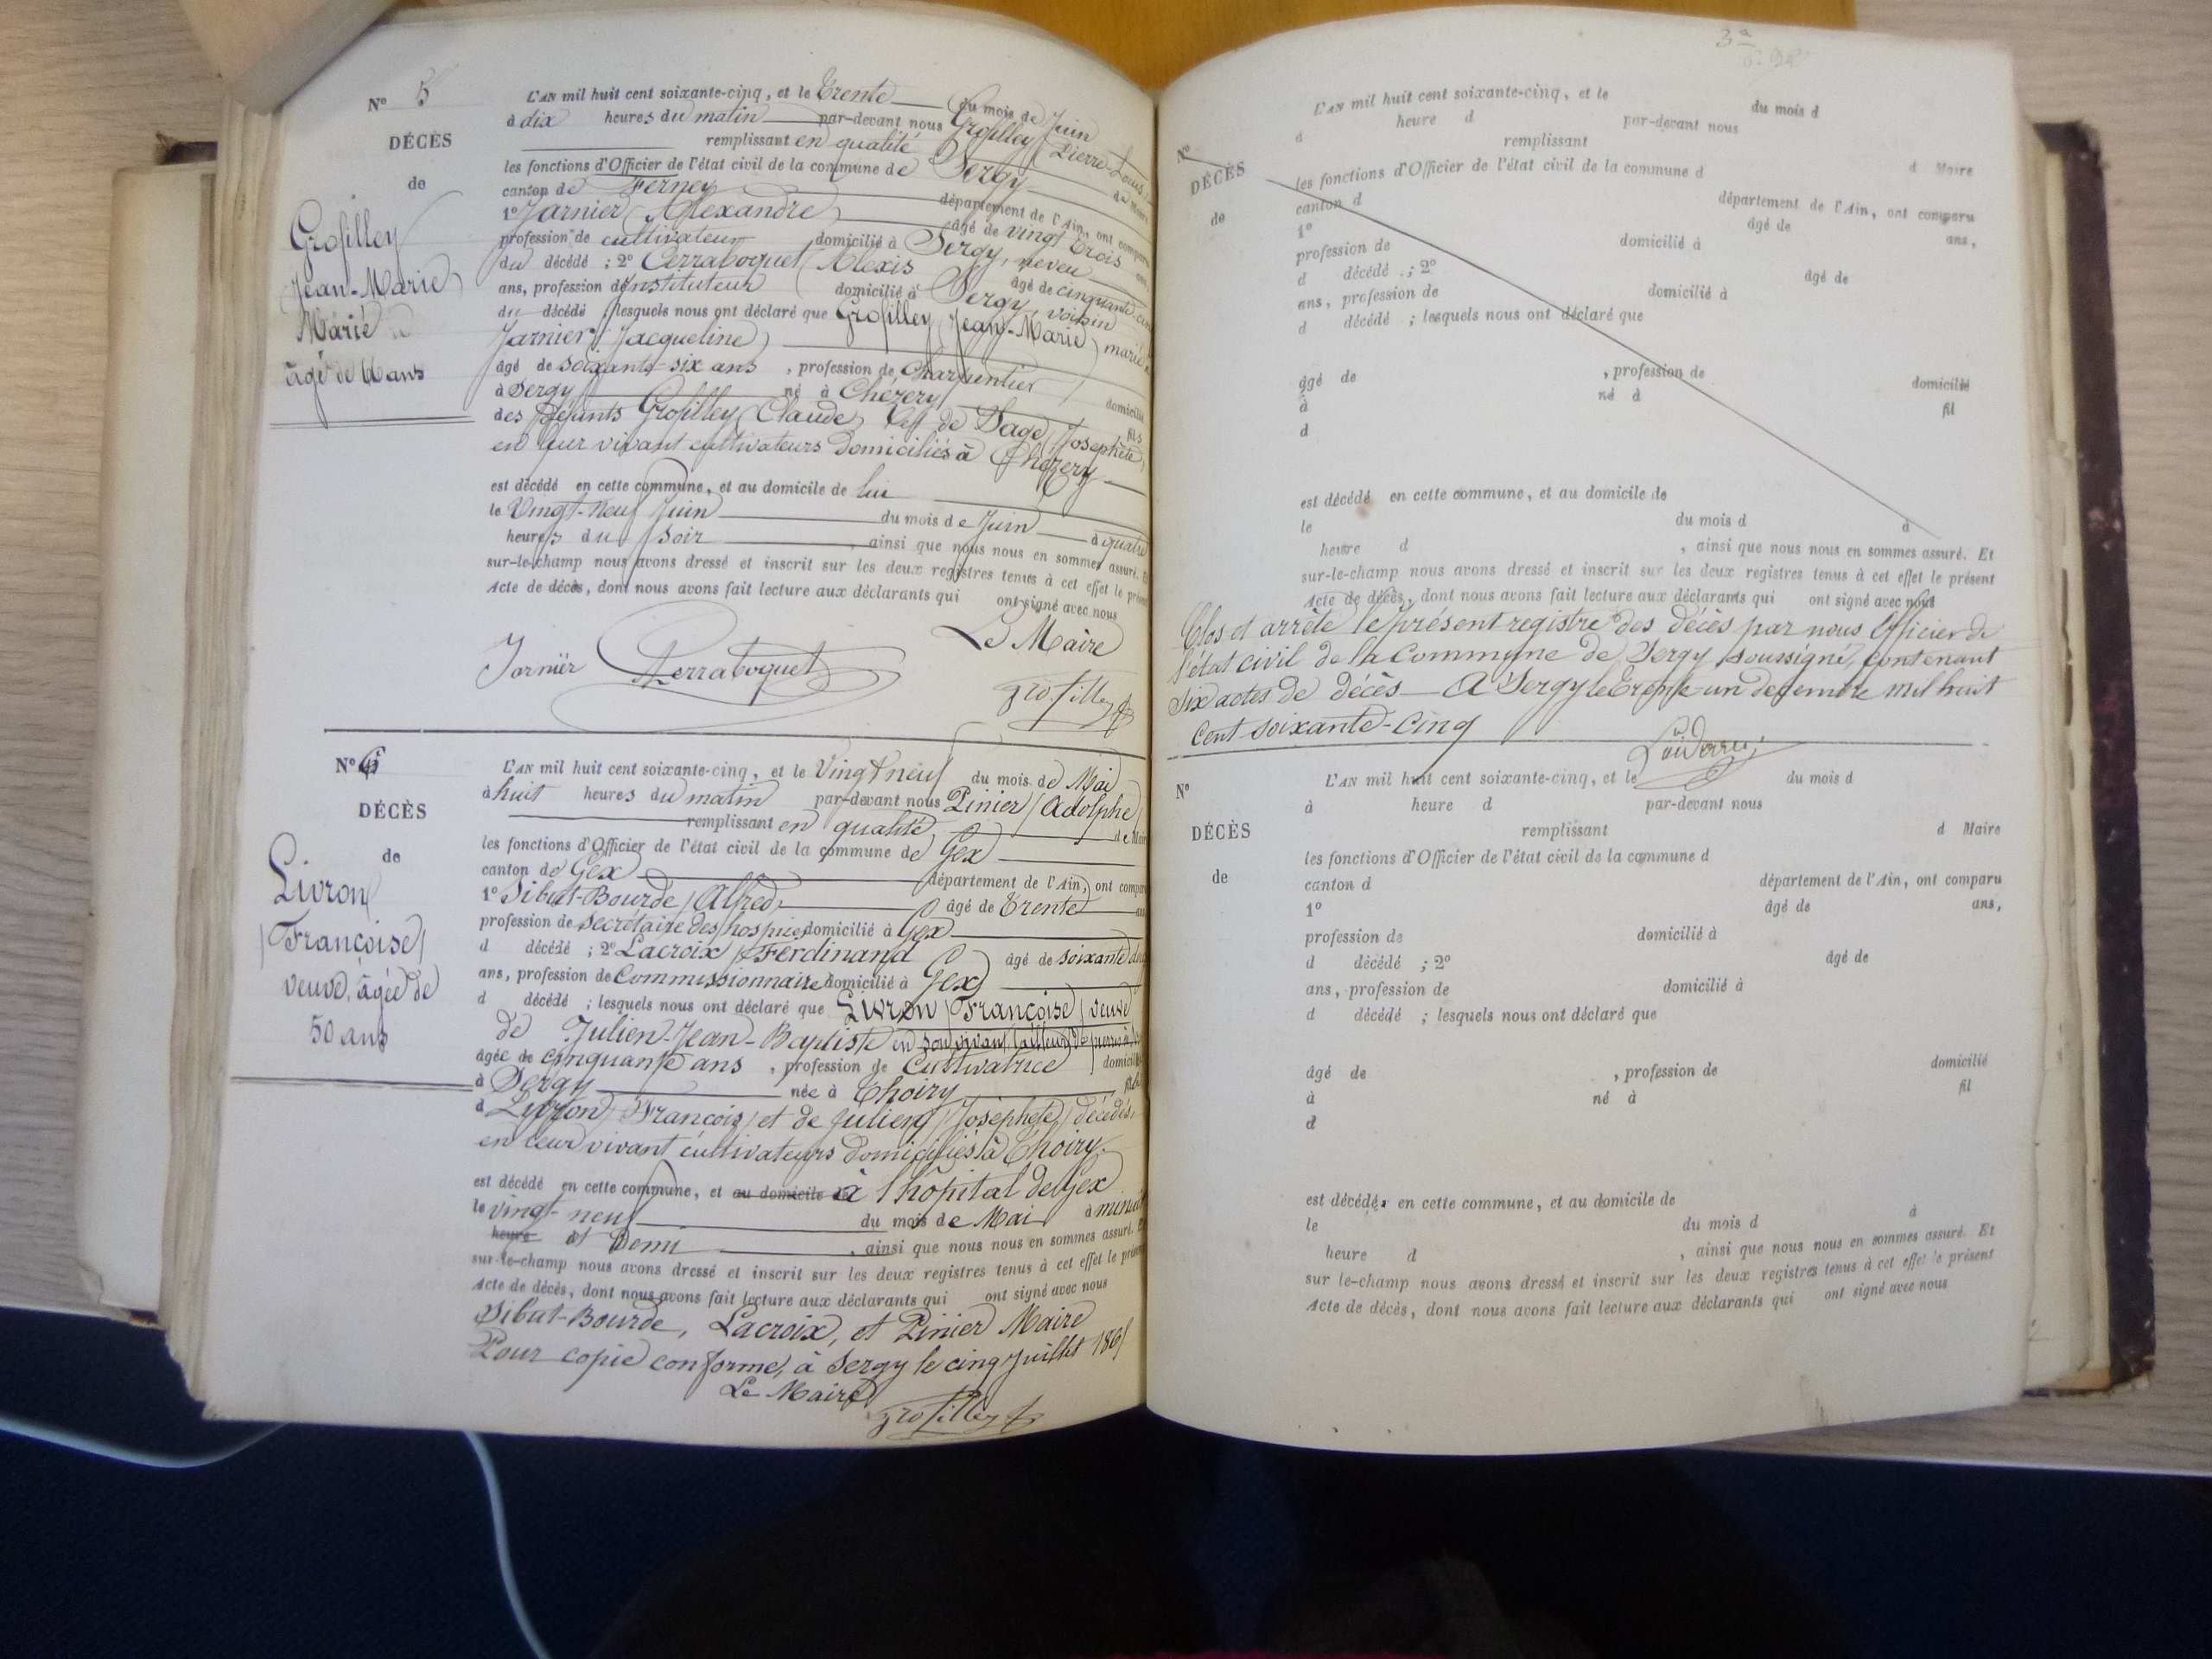 N° 5
DÉCÈS
de
Grosilley
Jean-Marie
Marié
âgé de 66 ans
L'AN mil huit cent soixante-cinq, et le Trente du mois de Juin
à dix heures du matin par-devant nous Grosilley Pierre Louis
remplissant en qualité de Maire
les fonctions d'Officier de l'état civil de la commune de Sergy
canton de Ferney département de l'Ain, ont comparu
1° Jarnier Alexandre âgé de vingt trois ans
profession de cultivateur domicilié à Sergy, neveu
du décédé ; 2° Perraboquet Alexis âgé de cinquante-cinq
ans, profession d'Instituteur domicilié à Sergy, voisin
du décédé ; lesquels nous ont déclaré que Grosilley Jean-Marie marié à
Jarnier Jacqueline
âgé de soixante-six ans, profession de Charpentier domicilié
à Sergy né à Chézery fils
des défunts Grosilley Claude, et de Page Josephete,
en leur vivant cultivateurs domiciliés à Chézery
est décédé en cette commune, et au domicile de lui
le Vingt-neuf Juin du mois de Juin à quatre
heures du soir, ainsi que nous nous en sommes assuré. Et
sur-le-champ nous avons dressé et inscrit sur les deux registres tenus à cet effet le présent
Acte de décès, dont nous avons fait lecture aux déclarants qui ont signé avec nous
Le Maire
Jarnier Perraboquet
Grosilley
N° 6
DÉCÈS
de
Livron
Françoise
veuve, âgée de
50 ans
L'AN mil huit cent soixante-cinq, et le Vingt neuf du mois de Mai
à huit heures du matin par-devant nous Pinier Adolphe
remplissant en qualité de Maire
les fonctions d'Officier de l'état civil de la commune de Gex
canton de Gex département de l'Ain, ont comparu
1° Sibut-Bourde Alfred, âgé de Trente ans
profession de secrétaire des hospices domicilié à Gex
d décédé ; 2° Lacroix Ferdinand âgé de soixante deux
ans, profession de Commissionnaire domicilié à Gex
d décédé ; lesquels nous ont déclaré que Livron Françoise veuve
de Julien-Jean-Baptiste en son vivant tailleur de pierres à
âgée de cinquante ans, profession de Cultivatrice domiciliée
à Sergy née à Thoiry fille
d Livron François et de Julien Josephete, décédés,
en leur vivant cultivateurs domiciliés à Thoiry.
est décédé en cette commune, et au domicile de à l'hôpital de Gex
le vingt-neuf du mois de Mai à minuit
heure et Demi, ainsi que nous nous en sommes assuré. Et
sur-le-champ nous avons dressé et inscrit sur les deux registres tenus à cet effet le présent
Acte de décès, dont nous avons fait lecture aux déclarants qui ont signé avec nous
Sibut-Bourde, Lacroix, et Pinier Maire
Pour copie conforme, à Sergy le cinq Juillet 1865
Le Maire
Grosilley
3e
N°
DÉCÈS
de
L'AN mil huit cent soixante-cinq, et le du mois d
à heure d par-devant nous
remplissant d Maire
les fonctions d'Officier de l'état civil de la commune d
canton d département de l'Ain, ont comparu
1° âgé de ans,
profession de domicilié à
d décédé ; 2° âgé de
ans, profession de domicilié à
d décédé ; lesquels nous ont déclaré que
âgé de , profession de domicilié
à né à fil
d
est décédé en cette commune, et au domicile de
le du mois d à
heure d , ainsi que nous nous en sommes assuré. Et
sur-le-champ nous avons dressé et inscrit sur les deux registres tenus à cet effet le présent
Acte de décès, dont nous avons fait lecture aux déclarants qui ont signé avec nous
Clos et arrêté le présent registre des décès par nous Officier de
l'état civil de la Commune de Sergy soussigné, contenant
Six actes de décès — A Sergy le Trente-un décembre mil huit
Cent soixante-cinq
N°
DÉCÈS
de
L'AN mil huit cent soixante-cinq, et le du mois d
à heure d par-devant nous
remplissant d Maire
les fonctions d'Officier de l'état civil de la commune d
canton d département de l'Ain, ont comparu
1° âgé de ans,
profession de domicilié à
d décédé ; 2° âgé de
ans, profession de domicilié à
d décédé ; lesquels nous ont déclaré que
âgé de , profession de domicilié
à né à fil
d
est décédé en cette commune, et au domicile de
le du mois d à
heure d , ainsi que nous nous en sommes assuré. Et
sur le-champ nous avons dressé et inscrit sur les deux registres tenus à cet effet le présent
Acte de décès, dont nous avons fait lecture aux déclarants qui ont signé avec nous